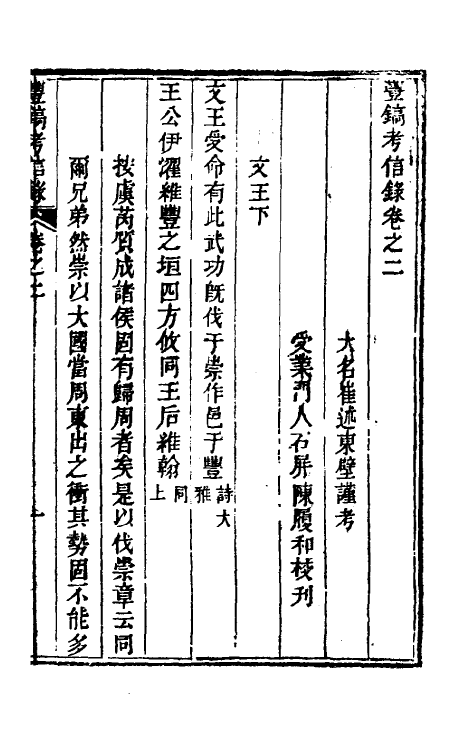 豐鎬考信錄卷之二
大名崔述東壁謹考
受業門人石屏陳履和校刊
文王下
文王受命有此武功既伐于崇作邑于豐詩大雅
王公伊濯維豐之垣四方攸同王后維翰同上
按虞芮質成諸侯固有歸周者矣是以伐崇章云同
爾兄弟然崇以大國當周東出之衝其勢固不能多
豐鎬考信錄 卷之二 一